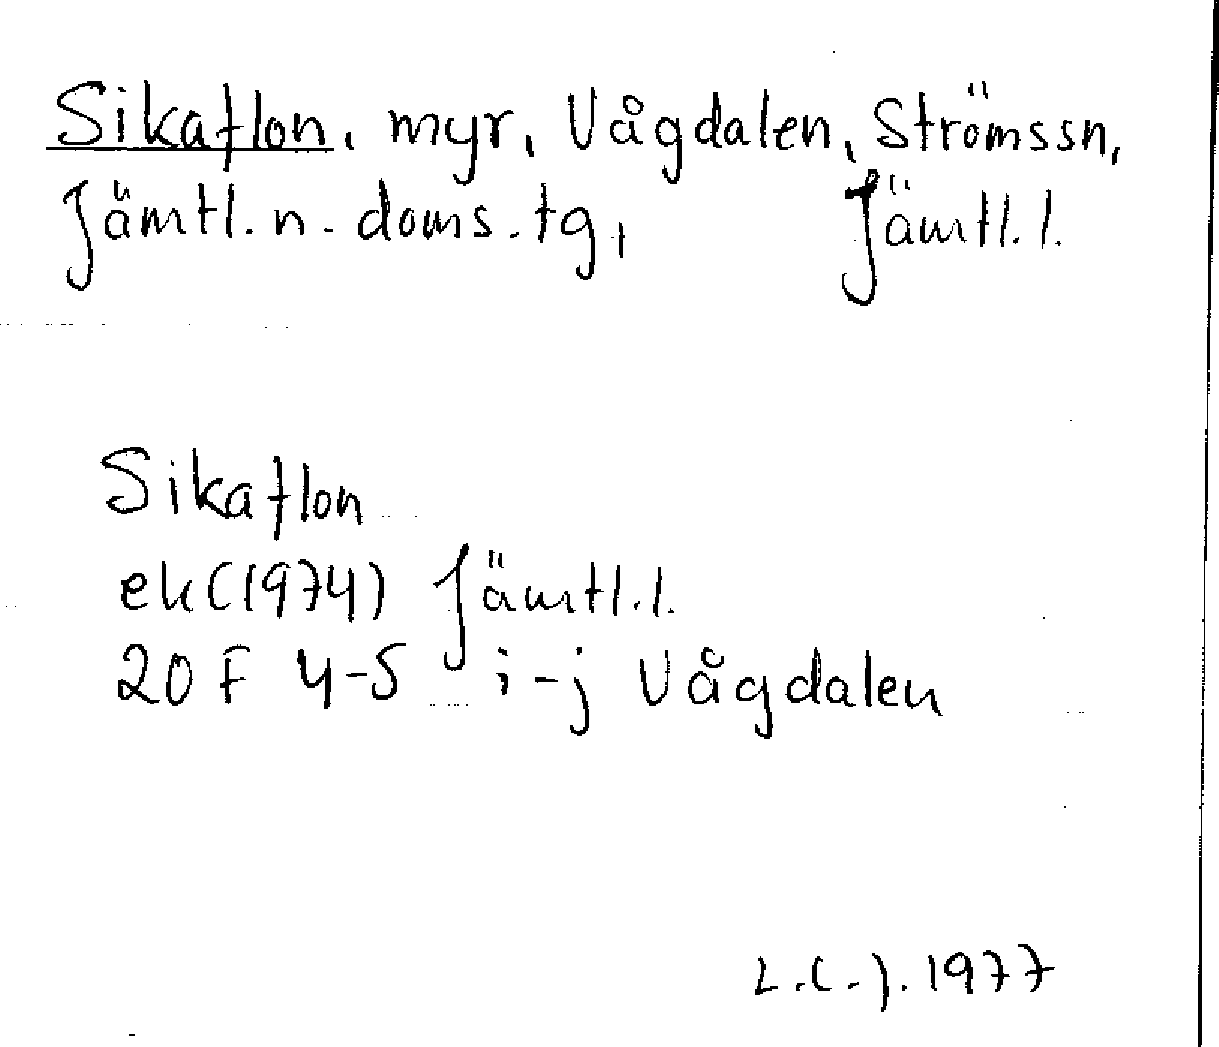 Sikaflon, myr, Vågdalen, Strömssn,
Jämtl. n. doms. tg, Jämtl. l.
Sikaflon
ek (1974) Jämtl. l.
20 F 4-5 i-j Vågdalen
L.C.J. 1977